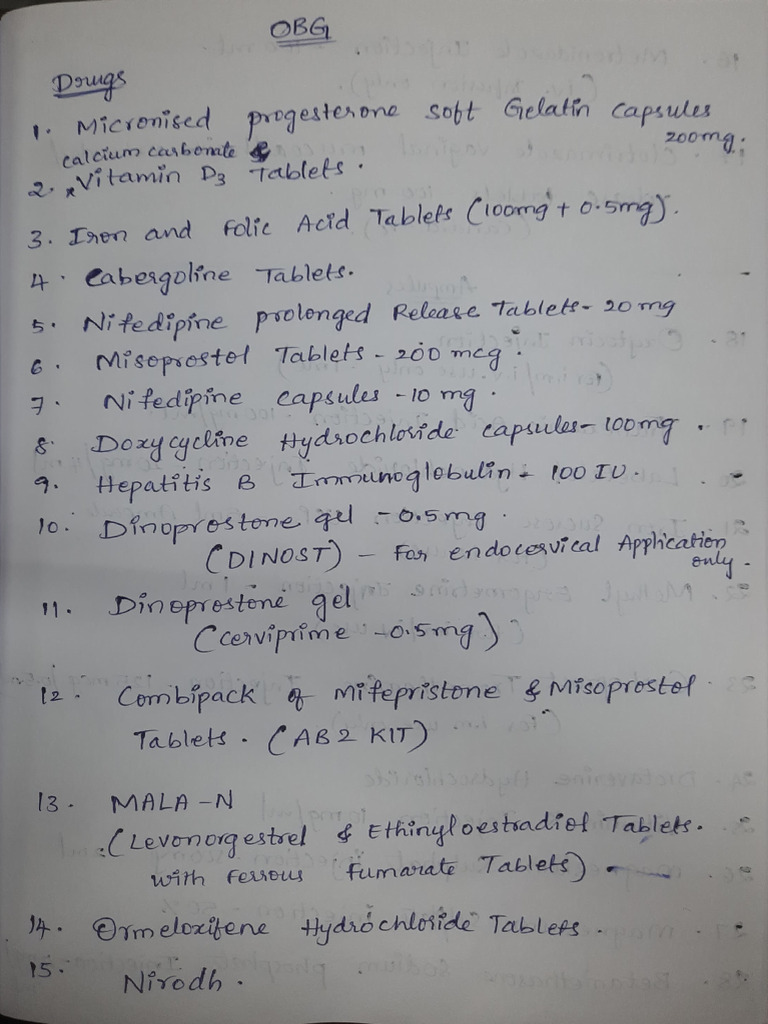 OBG
Drugs
1. Micronised progesterone soft Gelatin capsules
200mg.
calcium carbonate &
2. Vitamin D3 Tablets.
3. Iron and Folic Acid Tablets (100mg + 0.5mg).
4. Cabergoline Tablets.
5. Nifedipine prolonged Release Tablets - 20 mg
6. Misoprostol Tablets - 200 mcg.
7. Nifedipine capsules - 10 mg.
8. Doxycycline Hydrochloride capsules - 100mg.
9. Hepatitis B Immunoglobulin - 100 IU.
10. Dinoprostone gel - 0.5mg.
(DINOST) - For endocervical Application
only.
11. Dinoprostone gel
(cerviprime - 0.5mg)
12. Combipack of Mifepristone & Misoprostol
Tablets. (AB2 KIT)
13. MALA-N
(Levonorgestrel & Ethinyloestradiol Tablets.
with ferrous fumarate Tablets)
14. Ormeloxifene Hydrochloride Tablets.
15. Nirodh.